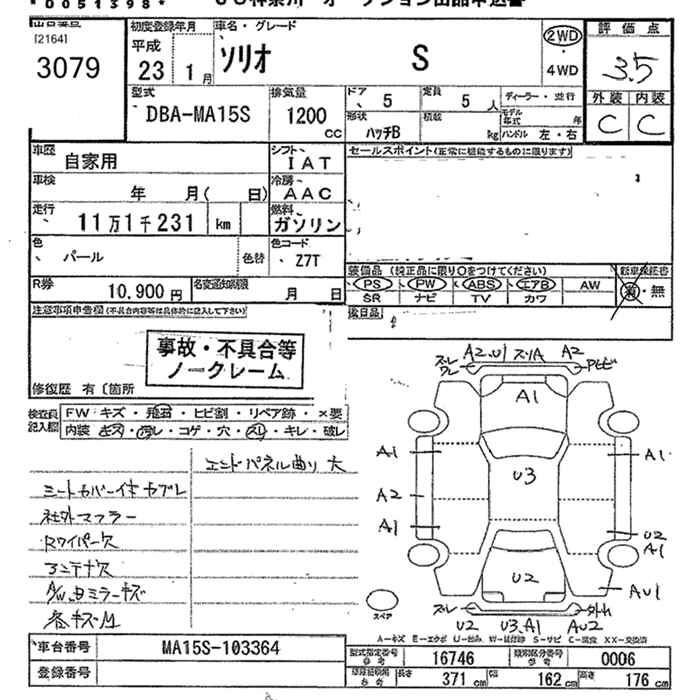 *D051398*
[2164]
3079
初度登録年月
平成
23 1月
車名・グレード
ソリオ S
2WD
・
4WD
評価点
3.5
外装 内装
C C
型式
DBA-MA15S
排気量
1200
cc
ドア
5
定員
5人
ディーラー・並行
形状
ハッチB
積載
kg
モデル年式
年
ハンドル 左・右
車歴
自家用
シフト
IAT
セールスポイント(正常に機能するものに限ります)
車検
年 月( 日)
冷房
AAC
走行
11万1千231 km
燃料
ガソリン
色
パール
色替
色コード
Z7T
装備品 (純正品に限り○をつけてください)
新車保証書
PS PW ABS エアB AW
SR ナビ TV カワ
有・無
R券
10,900円
名変通知期限
月 日
後日品
注意事項申告欄(不具合内容等は具体的に記入して下さい)
事故・不具合等
ノークレーム
修復歴 有〔箇所
検査員
記入欄
FW キズ・飛石・ヒビ割・リペア跡・×要
内装 キズ・汚レ・コゲ・穴・スレ・キレ・破レ
エンドパネル曲り 大
シートカバー付 ヤブレ
社外マフラー
Rワイパー欠
アンテナ欠
A/W, 由ミラーキズ
各キズ凹
A2.U1 スリA A2
A1
A1
A1
U3
A2
A1
U2
A1
U2
AU1
スペア
U2 U3.A1 AU2
A-キズ E-エクボ U-凹み W-補修跡 S-サビ C-腐食 XX-交換済
車台番号
MA15S-103364
登録番号
型式指定番号
参考
16746
類別区分番号
参考
0006
参考
長さ
371 cm
幅
162 cm
高さ
176 cm